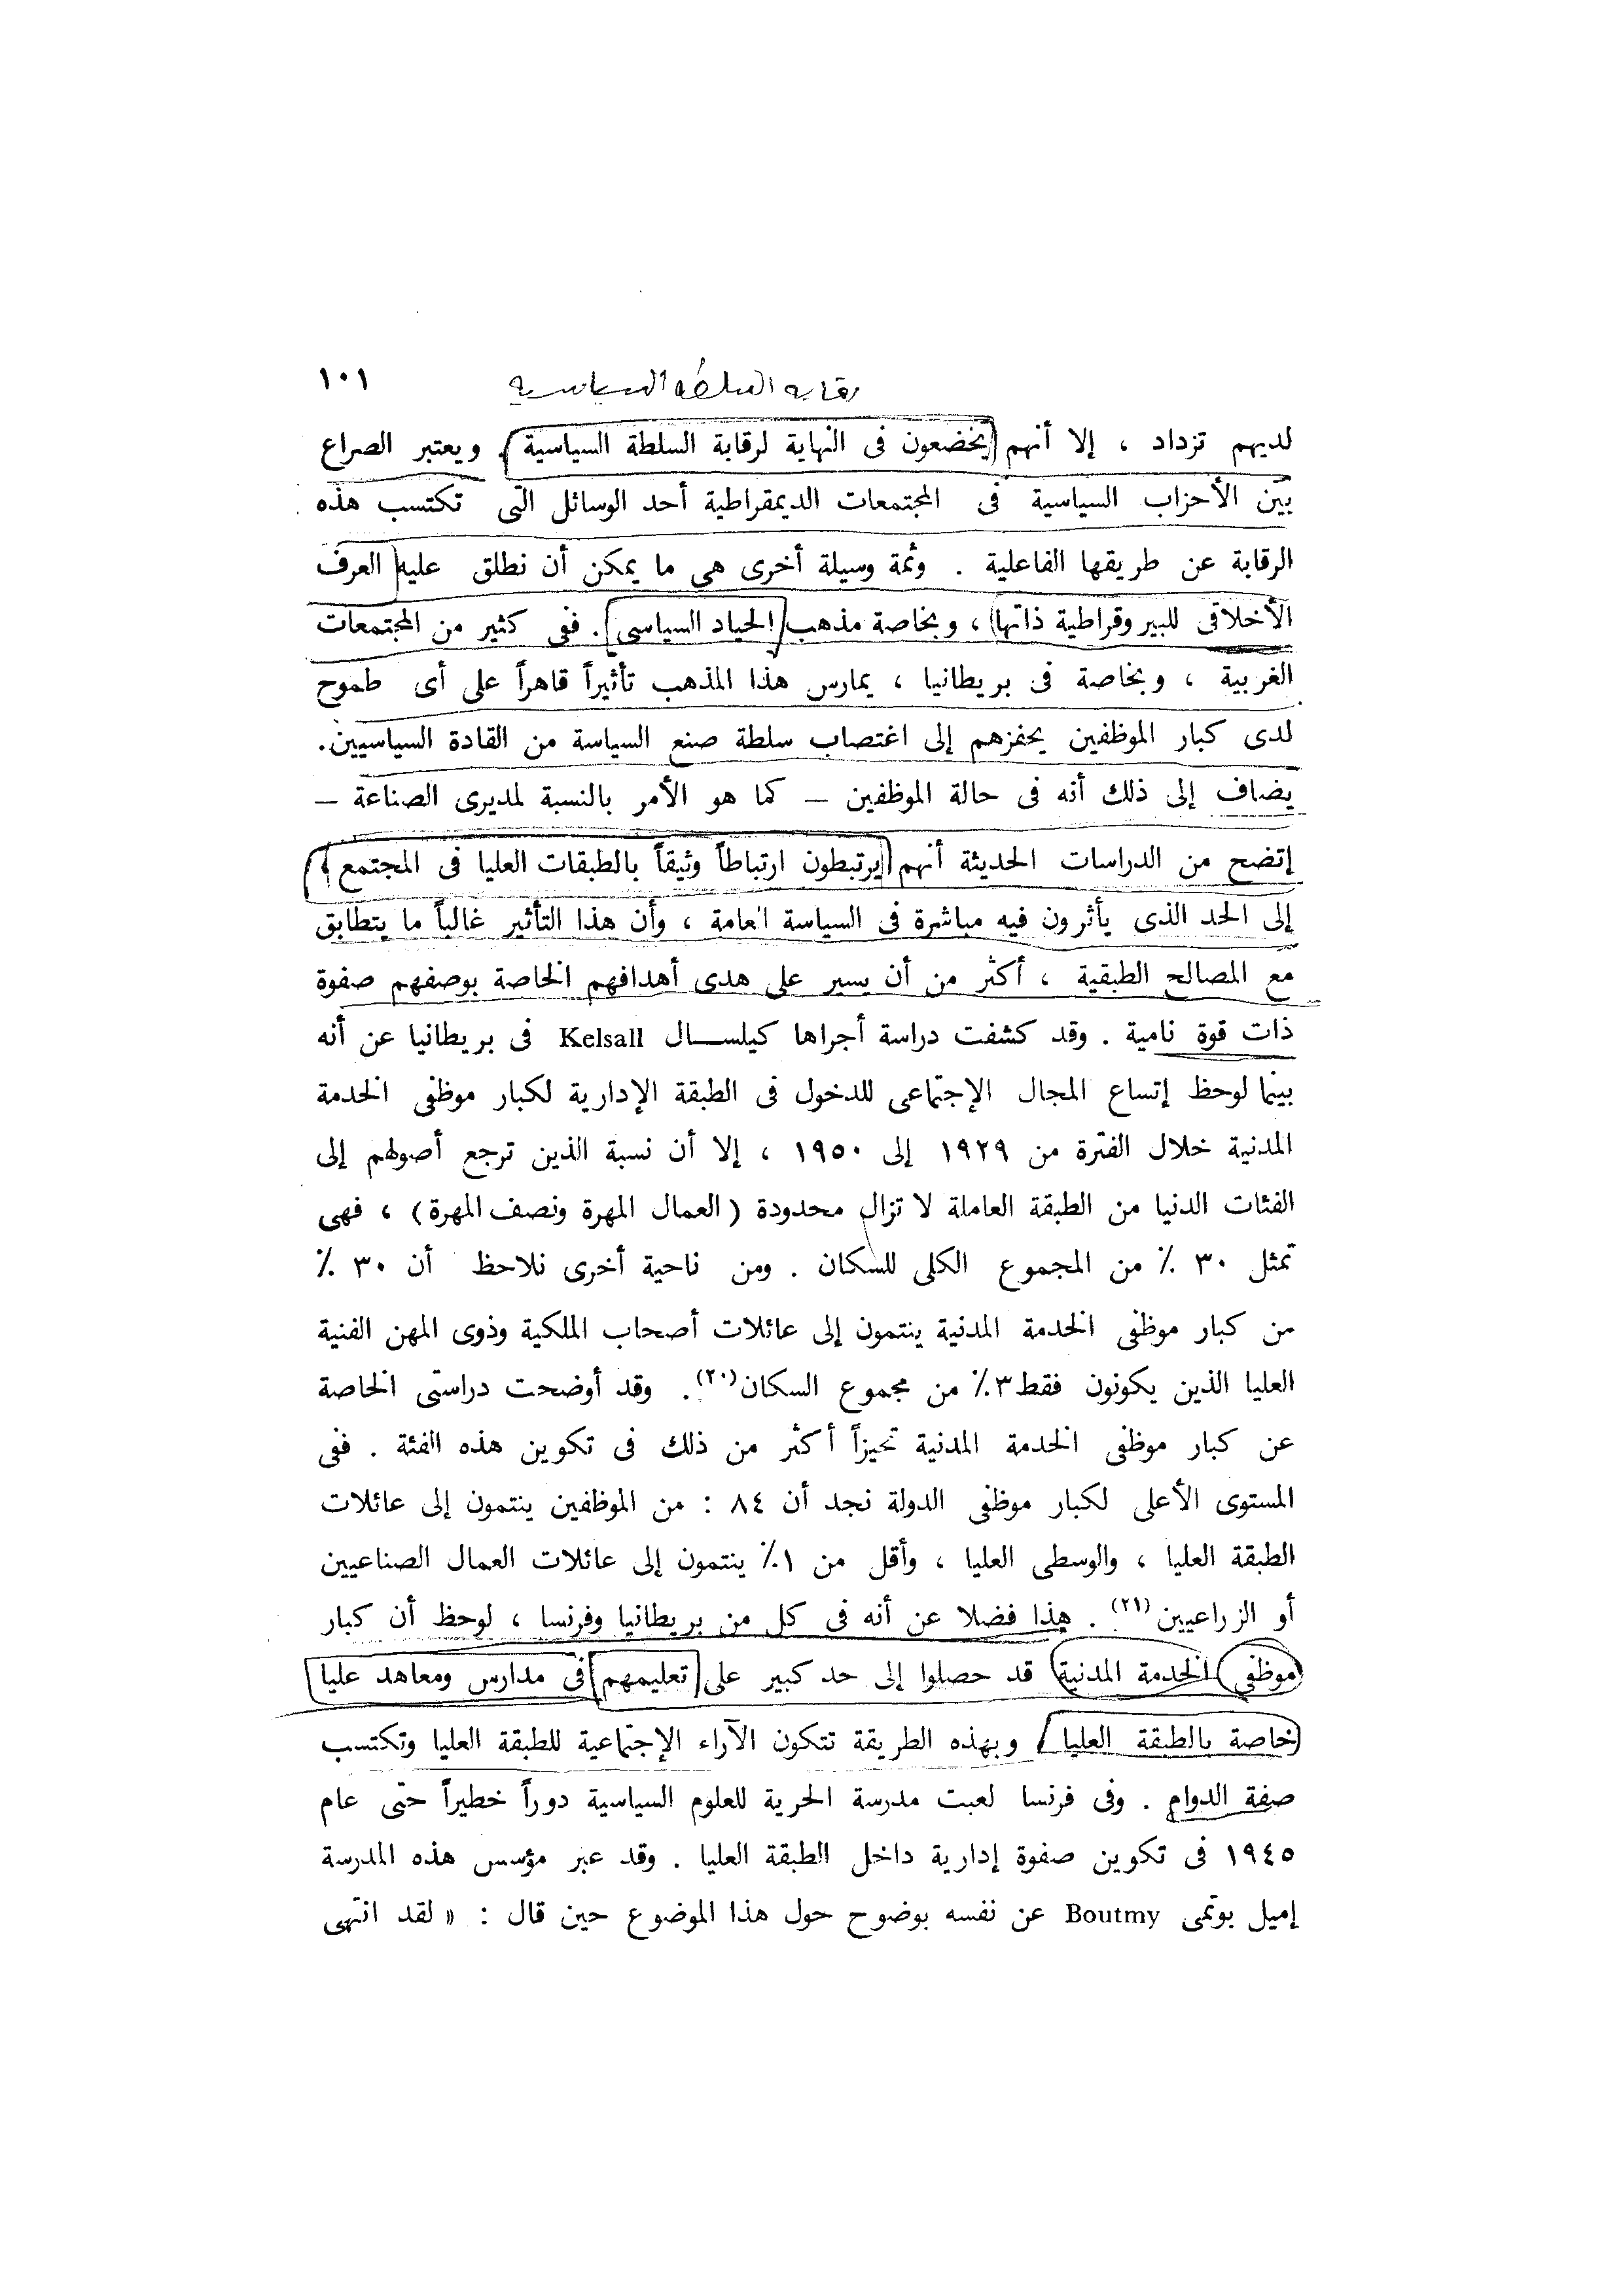 رقابه السلطه السياسيه ١٠١
لديهم تزداد ، إلا أنهم يخضعون فى النهاية لرقابة السلطة السياسية . ويعتبر الصراع
بين الأحزاب السياسية فى المجتمعات الديمقراطية أحد الوسائل التى تكتسب هذه
الرقابة عن طريقها الفاعلية . وثمة وسيلة أخرى هى ما يمكن أن نطلق عليه العرف
الأخلاقى للبيروقراطية ذاتها ، وبخاصة مذهب الحياد السياسى . ففى كثير من المجتمعات
الغربية ، وبخاصة فى بريطانيا ، يمارس هذا المذهب تأثيراً قاهراً على أى طموح
لدى كبار الموظفين يحفزهم إلى اغتصاب سلطة صنع السياسة من القادة السياسيين.
يضاف إلى ذلك أنه فى حالة الموظفين – كما هو الأمر بالنسبة لمديرى الصناعة –
إتضح من الدراسات الحديثة أنهم يرتبطون ارتباطاً وثيقاً بالطبقات العليا فى المجتمع ،
إلى الحد الذى يأثرون فيه مباشرة فى السياسة العامة ، وأن هذا التأثير غالباً ما يتطابق
مع المصالح الطبقية ، أكثر من أن يسير على هدى أهدافهم الخاصة بوصفهم صفوة
ذات قوة نامية . وقد كشفت دراسة أجراها كيلســال Kelsall فى بريطانيا عن أنه
بينما لوحظ إتساع المجال الإجتماعى للدخول فى الطبقة الإدارية لكبار موظفى الخدمة
المدنية خلال الفترة من ١٩٢٩ إلى ١٩٥٠ ، إلا أن نسبة الذين ترجع أصولهم إلى
الفئات الدنيا من الطبقة العاملة لا تزال محدودة ( العمال المهرة ونصف المهرة ) ، فهى
تمثل ٣٠ ٪ من المجموع الكلى للسكان . ومن ناحية أخرى نلاحظ أن ٣٠ ٪
من كبار موظفى الخدمة المدنية ينتمون إلى عائلات أصحاب الملكية وذوى المهن الفنية
العليا الذين يكونون فقط ٣٪ من مجموع السكان(٢٠). وقد أوضحت دراستى الخاصة
عن كبار موظفى الخدمة المدنية تحيزاً أكثر من ذلك فى تكوين هذه الفئة . ففى
المستوى الأعلى لكبار موظفى الدولة نجد أن ٨٤ : من الموظفين ينتمون إلى عائلات
الطبقة العليا ، والوسطى العليا ، وأقل من ١٪ ينتمون إلى عائلات العمال الصناعيين
أو الزراعيين(٢١) . هذا فضلا عن أنه فى كل من بريطانيا وفرنسا ، لوحظ أن كبار
موظفى الخدمة المدنية قد حصلوا إلى حد كبير على تعليمهم فى مدارس ومعاهد عليا
خاصة بالطبقة العليا ، وبهذه الطريقة تتكون الآراء الإجتماعية للطبقة العليا وتكتسب
صفة الدوام . وفى فرنسا لعبت مدرسة الحرية للعلوم السياسية دوراً خطيراً حتى عام
١٩٤٥ فى تكوين صفوة إدارية داخل الطبقة العليا . وقد عبر مؤسس هذه المدرسة
إميل بوتمى Boutmy عن نفسه بوضوح حول هذا الموضوع حين قال : « لقد انتهى